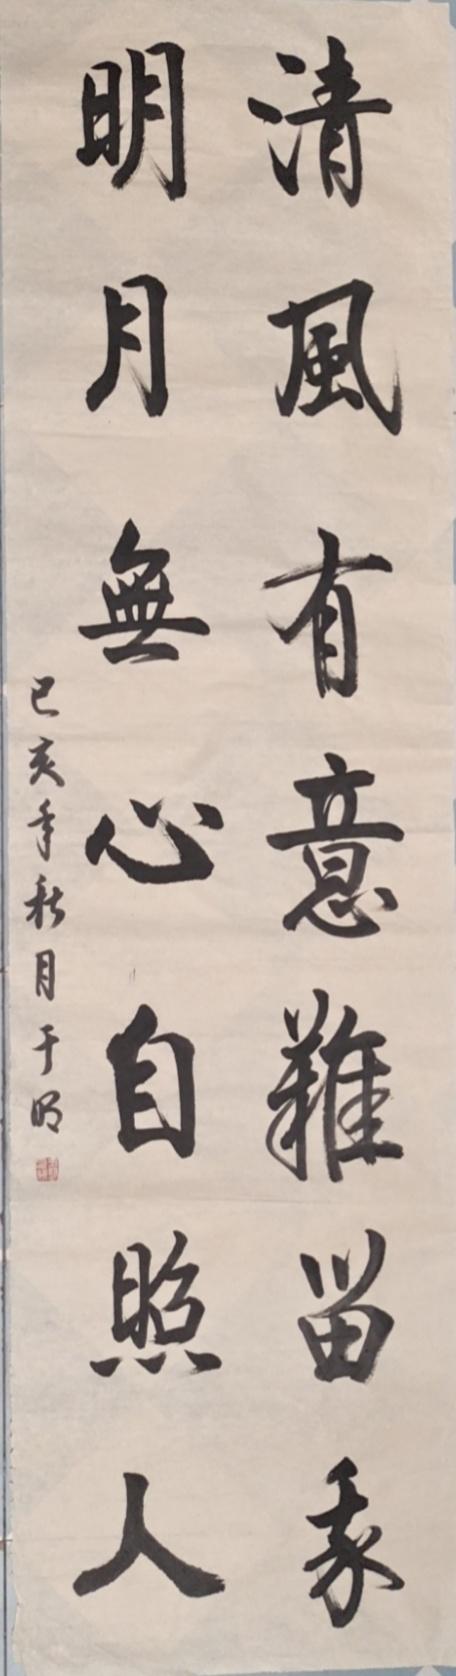 清風有意難留我
明月無心自照人
己亥年秋月于明